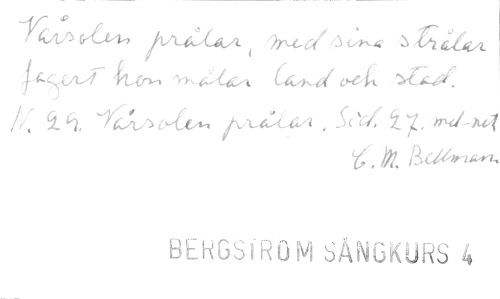 Vårsolen prålar, med sina strålar
fagert hon målar land och stad.
N. 29. Vårsolen prålar. Sid. 27. med not
C. M. Bellman
BERGSTRÖM SÅNGKURS 4